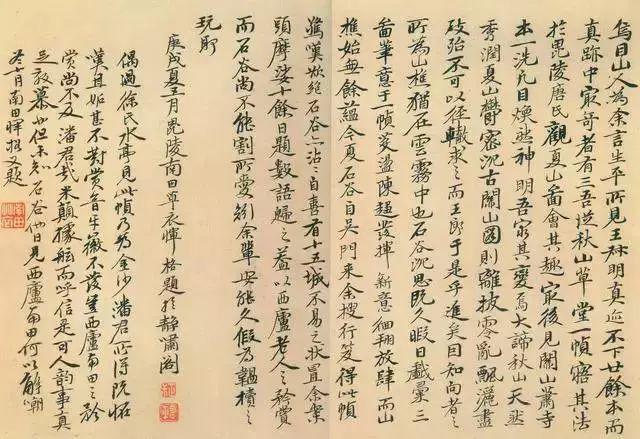 烏目山人為余言生平所見王叔明真迹不下廿餘本而
真跡中最奇者有三吾從秋山草堂一幀寤其法
於毘陵唐氏觀夏山圖會其趣最後見關山蕭寺
本一洗凡目煥然神明吾窮其變焉大諦秋山天然
秀潤夏山鬱密沉古關山圖則離披零亂飄灑盡
致殆不可以徑轍求之而王郎于是乎進矣因知向者之
所為山樵猶在雲霧中也石谷沉思既久暇日戲彙三
圖筆意于一幀滌盪陳趨發揮新意徊翔放肆而山
樵始無餘蘊今夏石谷自吳門來余搜行笈得此幀
驚嘆欲絕石谷亦沾沾自喜有十五城不易之狀置余案
頭摩挲十餘日題數語歸之蓋以西廬老人之矜賞
而石谷尚不能割所愛矧余輩安能久假為韞櫝之
玩耶
庚戌夏五月毘陵南田草衣惲格題於靜嘯閣
偶過徐氏水亭見此幀乃為金沙潘君所得既怪
嘆且妬甚不對賞音牙徽不發豈西廬南田之矜
賞尚不及潘君哉米顛據舷而呼信是可人韻事真
足效慕也但未知石谷他日見西廬南田何以解嘲
冬十月南田惲格又題